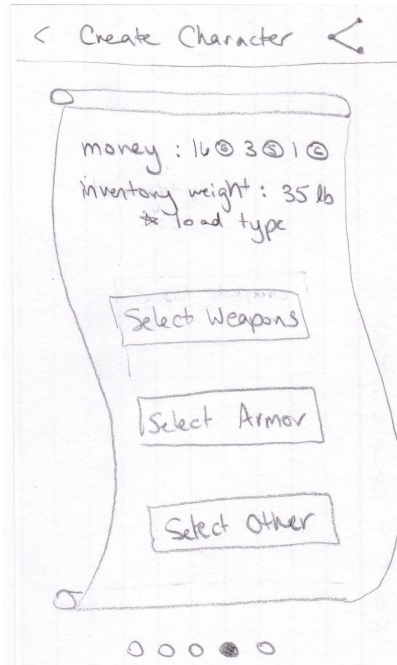 < Create Character
money : 16 G 3 S 1 C
inventory weight : 35 lb
* load type
Select Weapons
Select Armor
Select Other